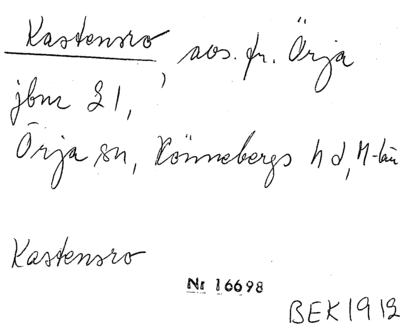 Kastensro, avs. fr. Örja
jbm 31,
Örja sn, Rönnebergs hd, M-län
Kastensro
Nr 16698
BEK 1912